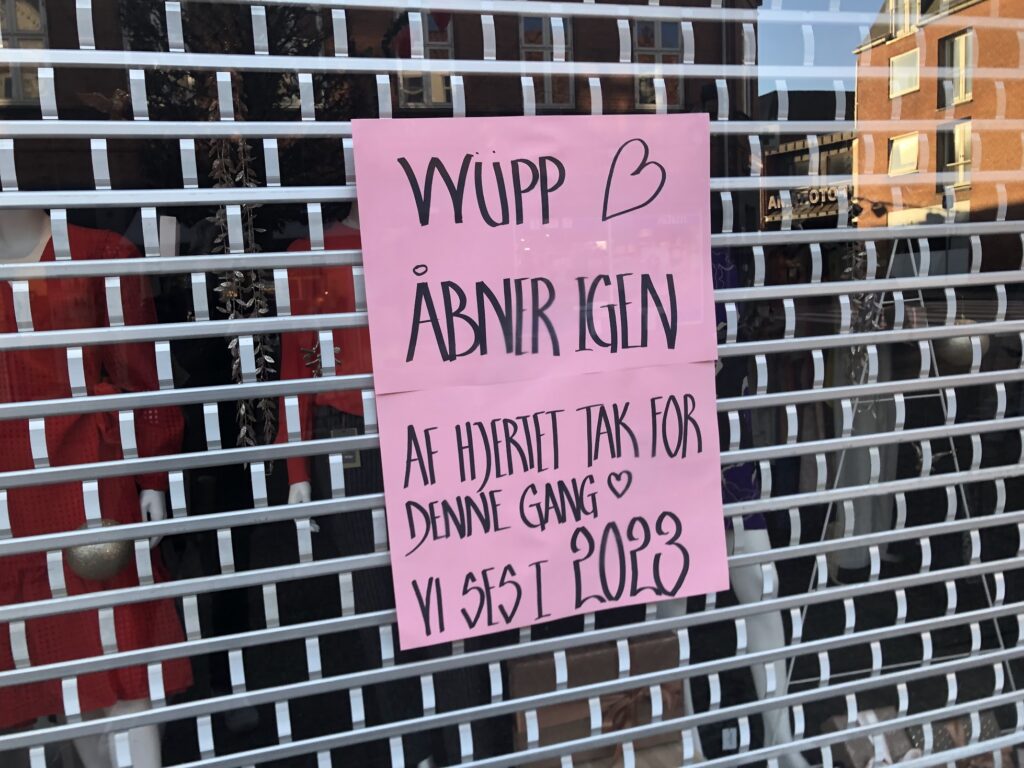 WÜPP
ÅBNER IGEN
AF HJERTET TAK FOR
DENNE GANG
VI SES I 2023